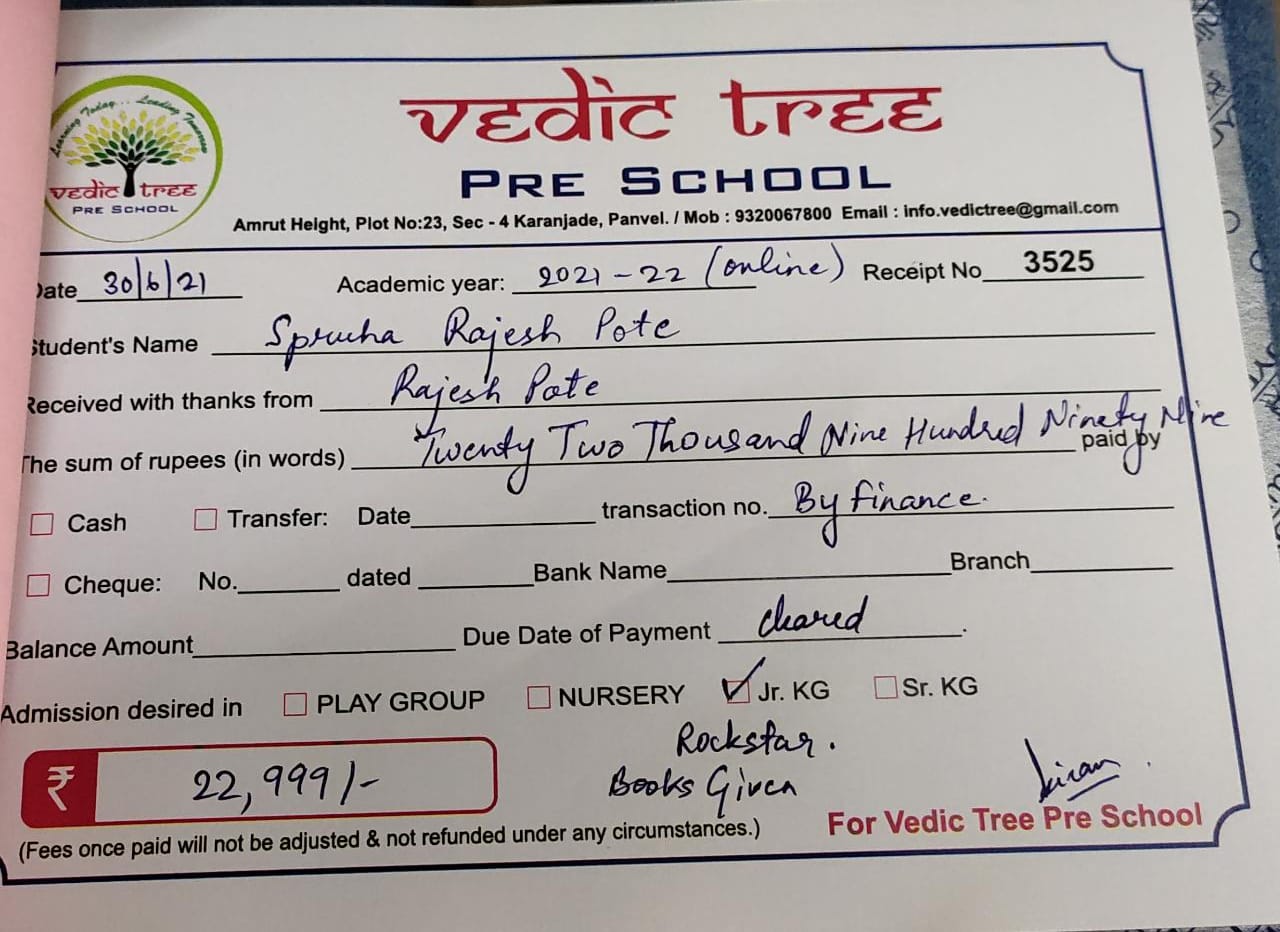 Learning Today... Leading Tomorrow
vedic tree
PRE SCHOOL
vedic tree
PRE SCHOOL
Amrut Height, Plot No:23, Sec - 4 Karanjade, Panvel. / Mob : 9320067800 Email : info.vedictree@gmail.com
Date 30/6/21 Academic year: 2021-22 (online) Receipt No 3525
Student's Name Sprucha Rajesh Pote
Received with thanks from Rajesh Pote
The sum of rupees (in words) Twenty Two Thousand Nine Hundred Ninety Nine paid by
Cash Transfer: Date transaction no. By finance.
Cheque: No. dated Bank Name Branch
Balance Amount Due Date of Payment cleared
Admission desired in PLAY GROUP NURSERY Jr. KG Sr. KG
Rockstar.
₹ 22,999/- Books Given Kiran
(Fees once paid will not be adjusted & not refunded under any circumstances.) For Vedic Tree Pre School